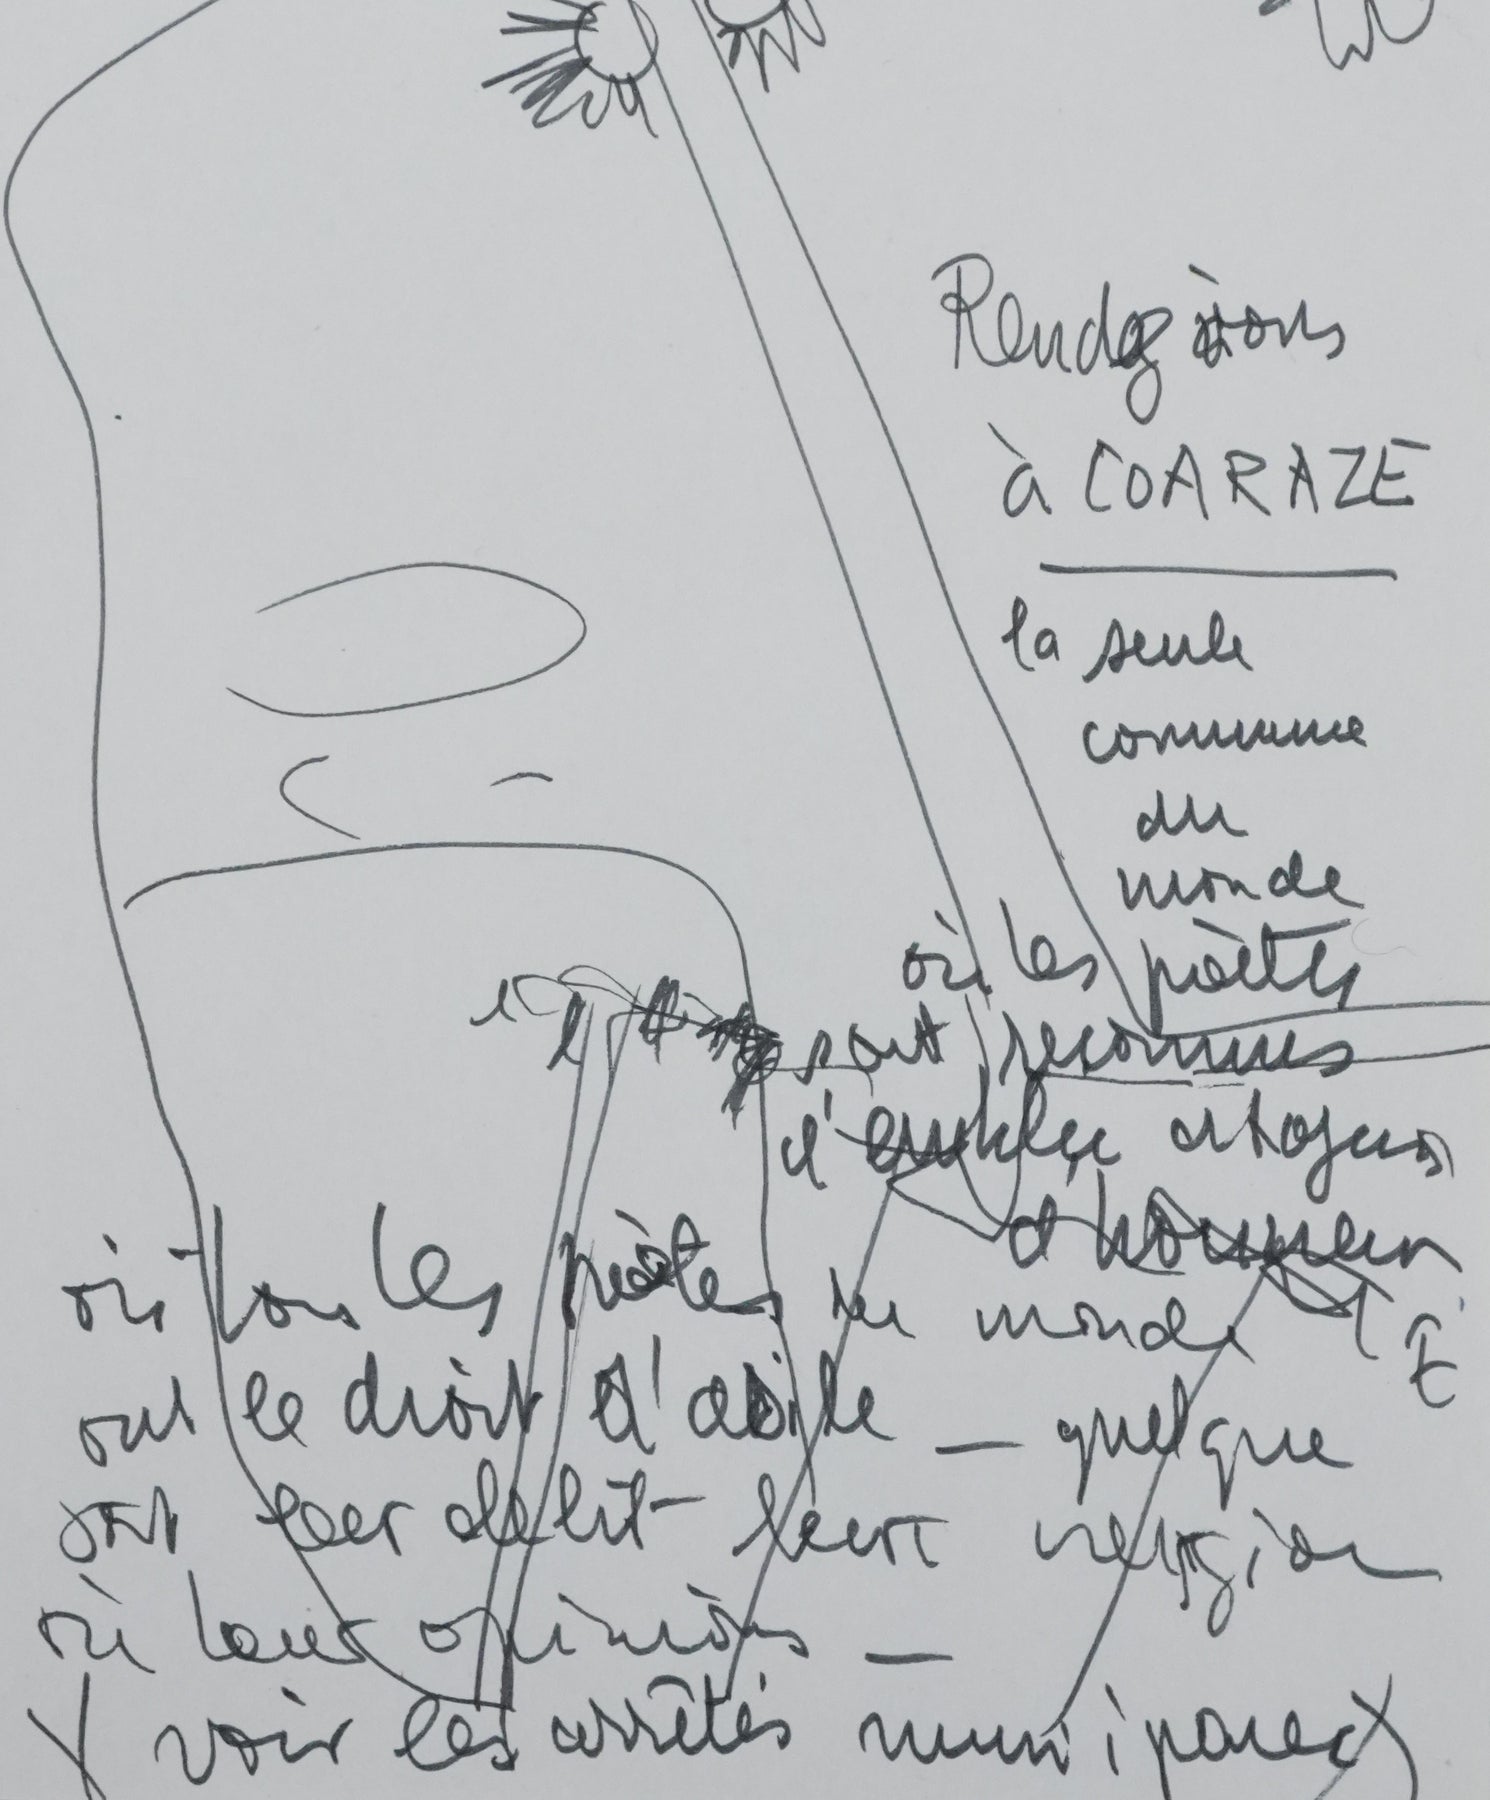 Rendez vous
à COARAZE
la seule
commune
du
monde
où les poètes
sont reconnus
d'emblée citoyens
d'honneur
où tous les poètes du monde
ont le droit d'asile — quelque
soit leur délit leur religion
où leurs opinions —
voir les arrêtés municipaux)